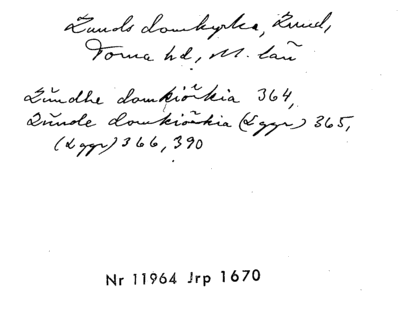 Lunds domkyrka, Lund,
Torna hd, M. län
Lŭndhe domkiörkia 364,
Lŭnde domkiörkia (2 ggr) 365,
(2 ggr) 366, 390
Nr 11964 Jrp 1670